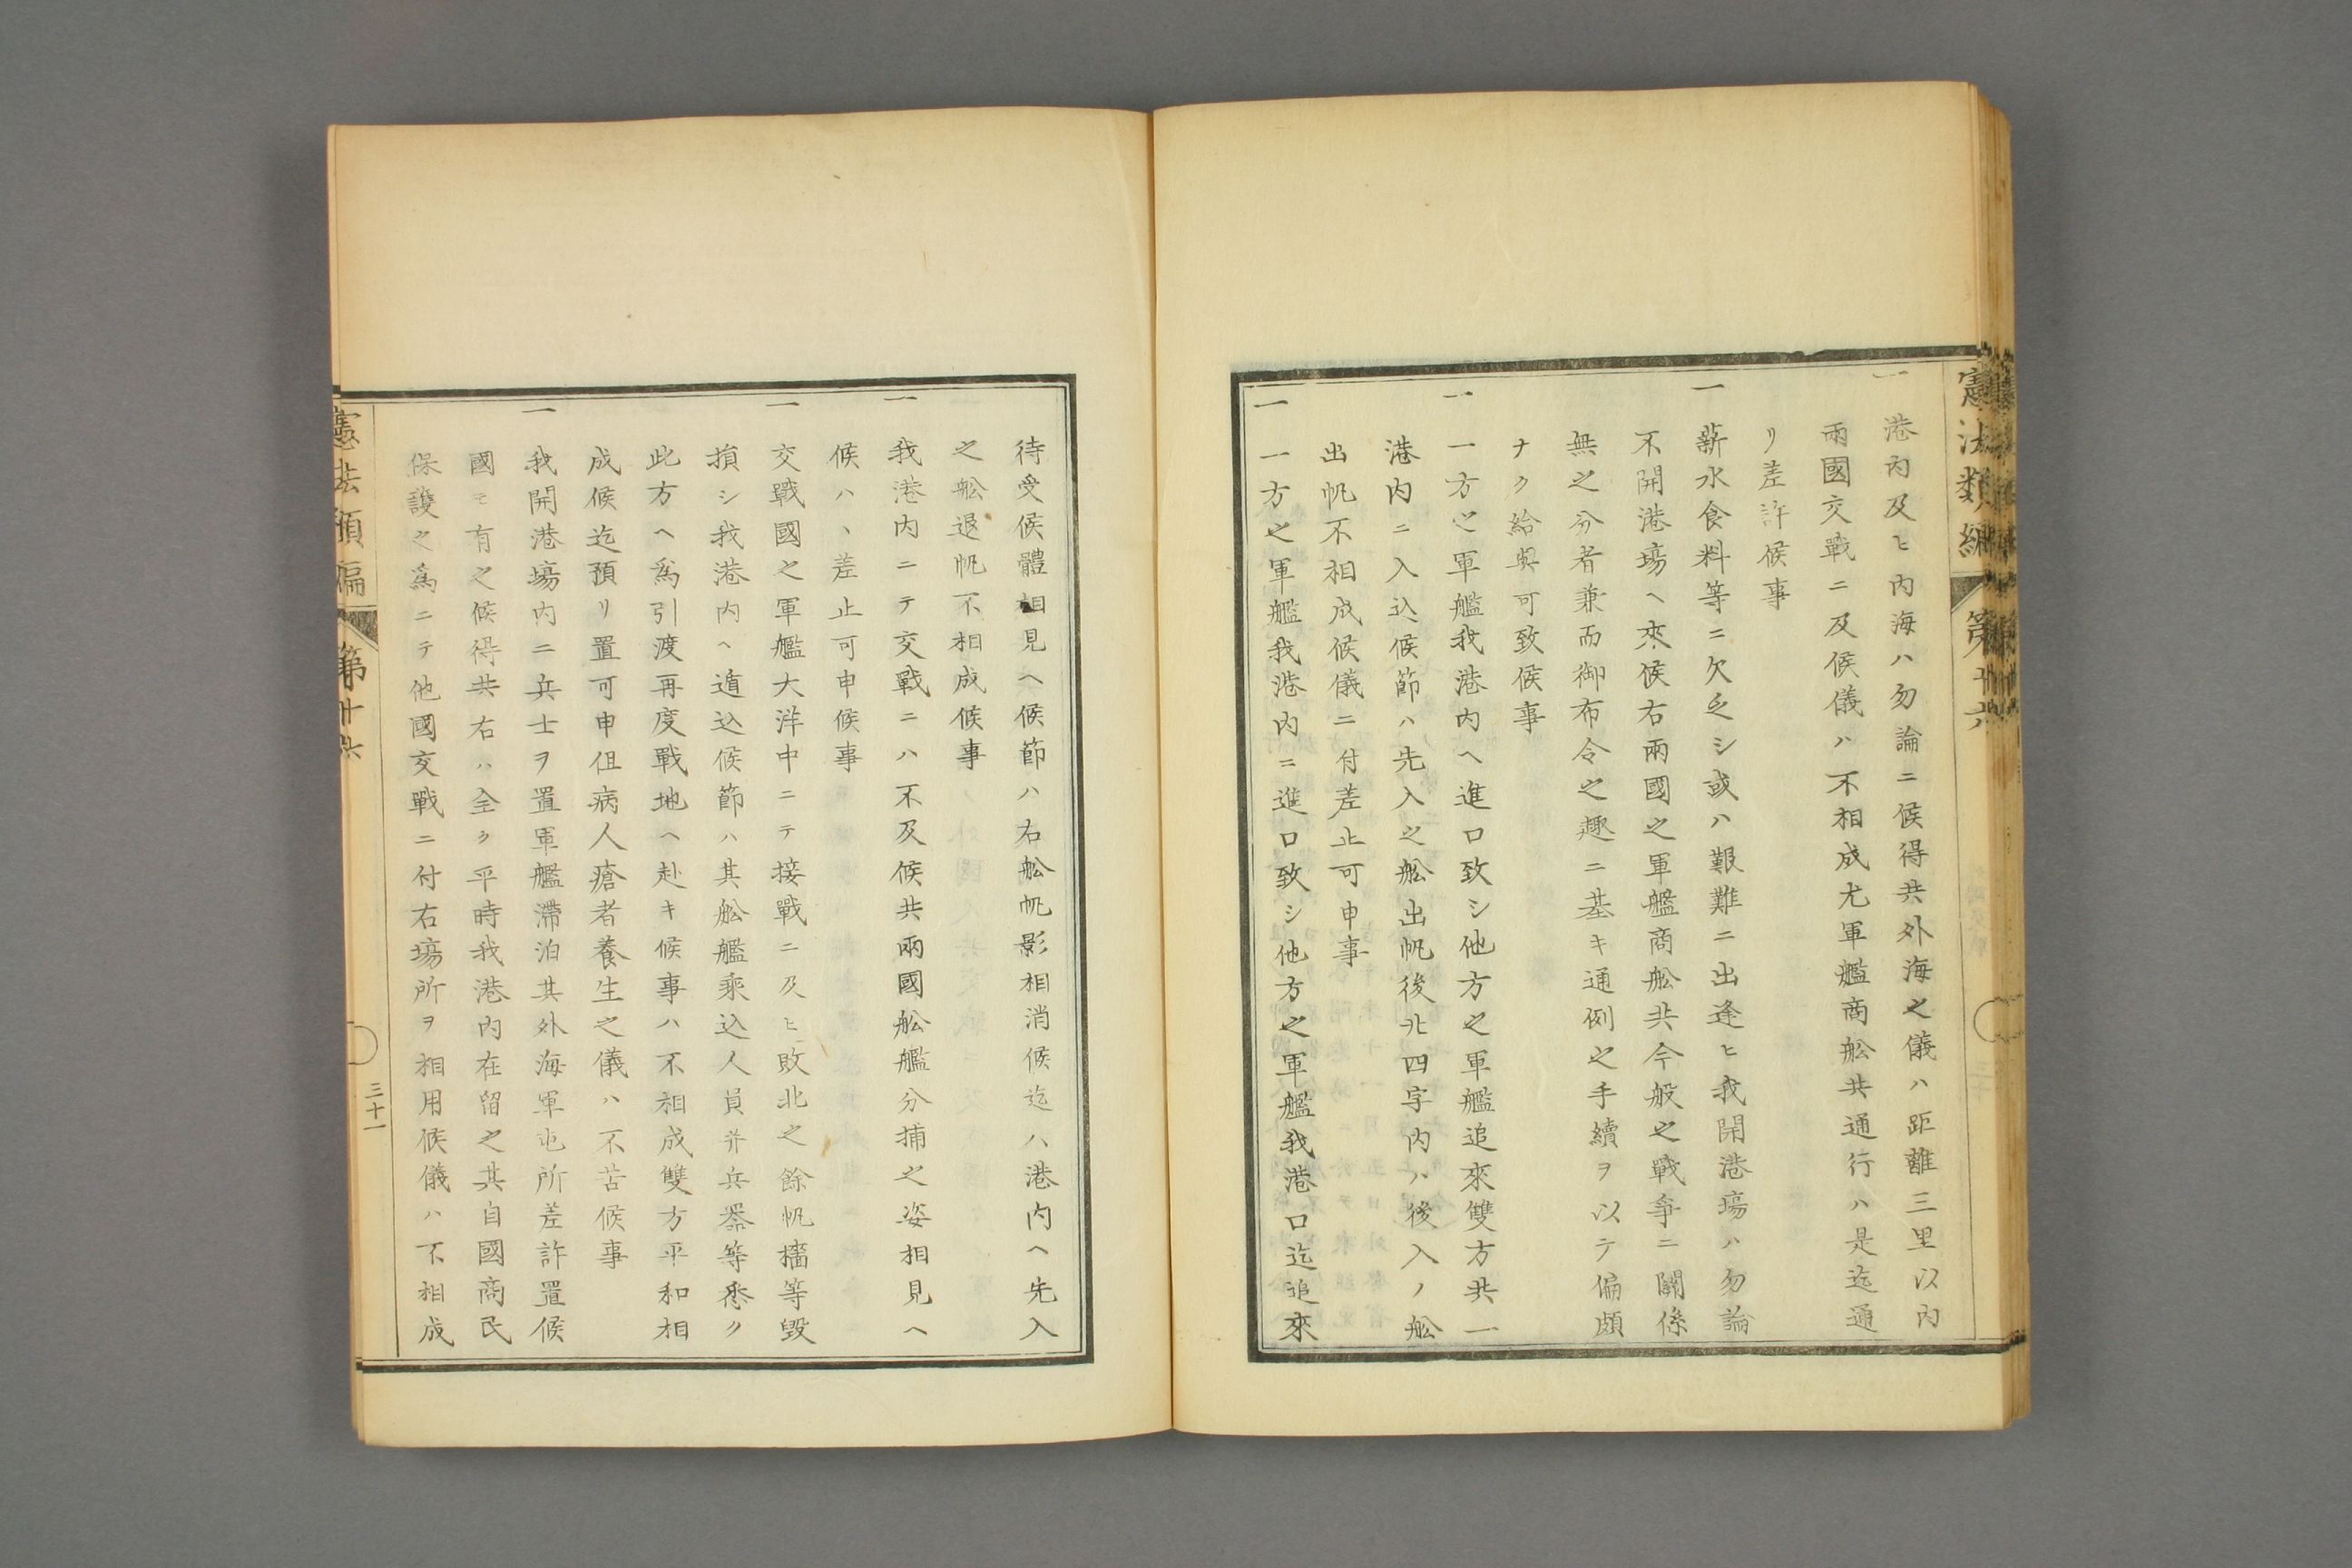 憲法類編 第十六
一 港內及ヒ內海ハ勿論ニ候得共外海之儀ハ距離三里以內
兩國交戰ニ及候儀ハ不相成尤軍艦商舩共通行ハ是迄通
リ差許候事
一 薪水食料等ニ欠乏シ或ハ艱難ニ出逢ヒ我開港塲ハ勿論
不開港塲ヘ來候右兩國之軍艦商舩共今般之戰爭ニ關係
無之分者兼而御布令之趣ニ基キ通例之手續ヲ以テ偏頗
ナク給與可致候事
一 一方之軍艦我港內ヘ進口致シ他方之軍艦追來雙方共一
港內ニ入込候節ハ先入之舩出帆後廿四字內ハ後入ノ舩
出帆不相成候儀ニ付差止可申事
一 一方之軍艦我港內ニ進口致シ他方之軍艦我港口迄追來
待受候體相見ヘ候節ハ右舩帆影相消候迄ハ港內ヘ先入
之舩退帆不相成候事
一 我港內ニテ交戰ニハ不及候共兩國舩艦分捕之姿相見ヘ
候ハヽ差止可申候事
一 交戰國之軍艦大洋中ニテ接戰ニ及ヒ敗北之餘帆檣等毀
損シ我港內ヘ遁込候節ハ其舩艦乘込人員并兵器等悉ク
此方ヘ爲引渡再度戰地ヘ赴キ候事ハ不相成雙方平和相
成候迄預リ置可申但病人瘡者養生之儀ハ不苦候事
一 我開港塲內ニ兵士ヲ置軍艦滯泊其外海軍屯所差許置候
國モ有之候得共右ハ全ク平時我港內在留之其自國商民
保護之爲ニテ他國交戰ニ付右塲所ヲ相用候儀ハ不相成
憲法類編 第十六 三十一